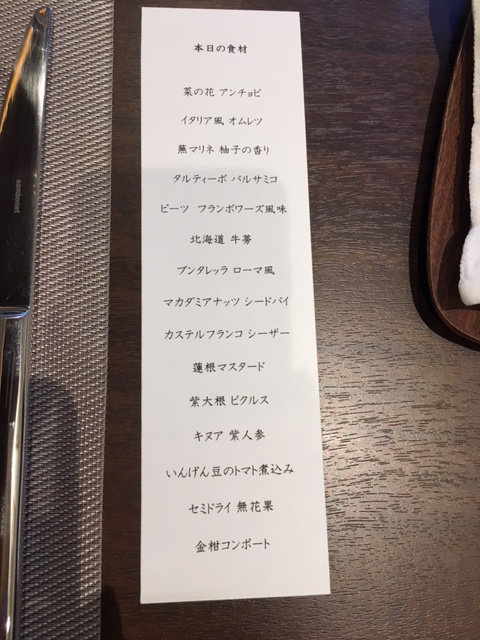 本日の食材
菜の花 アンチョビ
イタリア風 オムレツ
蕪マリネ 柚子の香り
タルティーボ バルサミコ
ビーツ フランボワーズ風味
北海道 牛蒡
プンタレッラ ローマ風
マカダミアナッツ シードパイ
カステルフランコ シーザー
蓮根マスタード
紫大根 ピクルス
キヌア 紫人参
いんげん豆のトマト煮込み
セミドライ 無花果
金柑コンポート